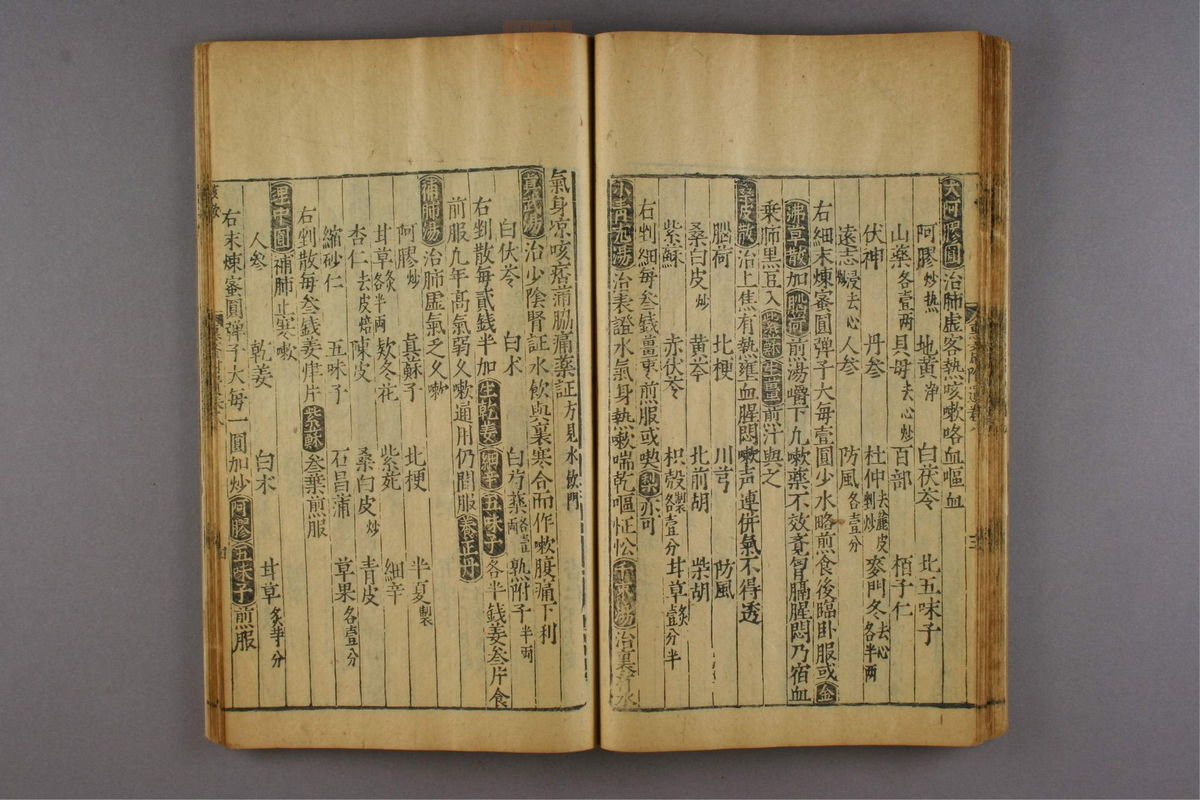 大阿膠圓治肺虛客熱咳嗽咯血嘔血
阿膠炒熱 地黃淨 白茯苓 北五味子
山藥各壹兩 貝母去心炒 百部 栢子仁
伏神 丹參 杜仲去麁皮剉炒 麥門冬去心各半兩
遠志浸去心 人參 防風各壹分
右細末煉蜜圓彈子大每壹圓少水略煎食後臨卧服或金
沸草散加薄荷煎湯嚼下九嗽藥不效竟胷膈腥悶乃宿血
乗肺黑豆入紫蘇生薑煎汁與之
皮散治上焦有熱壅血腥悶嗽声連併氣不得透
腦荷 北梗 川芎 防風
桑白皮炒 黃芩 北前胡 柴胡
紫蘇 赤伏苓 枳殼製各壹分 甘草炙壹分半
右剉細每叁錢薑棗煎服或喫梨亦可
小青尤湯治表證水氣身熱嗽喘乾嘔怔忪 湯治裏 水
氣身凉咳痞滿脇痛藥証方見水飲門
真武湯治少陰腎証水飲與裏寒合而作嗽腹痛下利
白伏苓 白朮 白芍藥各壹兩 熟附子半兩
右剉散每貳錢半加生乾姜細辛五味子各半錢姜叁片食
前服九年髙氣弱久嗽通用仍間服養正丹
補肺湯治肺虛氣乏久嗽
阿膠炒 真蘇子 北梗 半夏製
甘草炙各半兩 欵冬花 紫菀 細辛
杏仁去皮焙 陳皮 桑白皮炒 青皮
縮砂仁 五味子 石昌蒲 草果各壹分
右剉散每叁錢姜肆片紫蘇叁葉煎服
理中圓補肺止寒嗽
人參 乾姜 白朮 甘草炙半分
右末煉蜜圓彈子大每一圓加炒阿膠五味子煎服